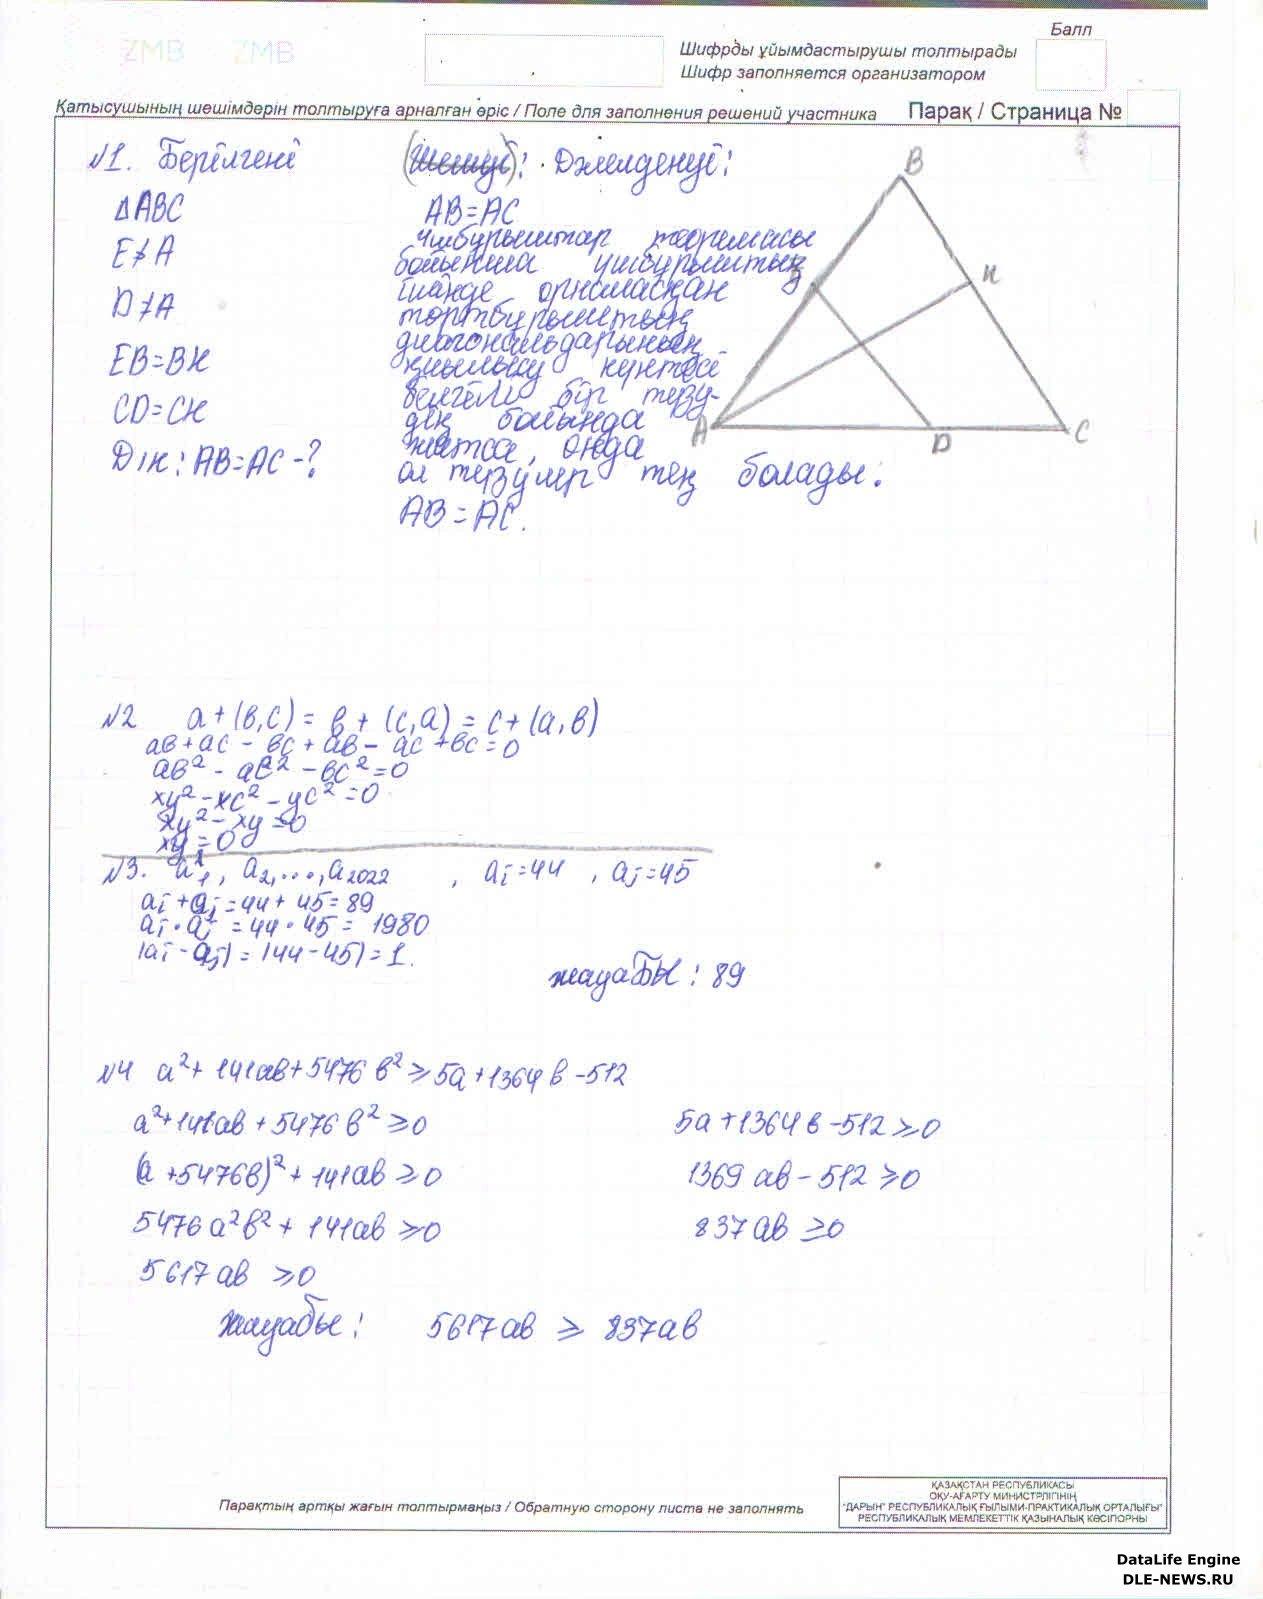 ZMB ZMB
Балл
Шифрды ұйымдастырушы толтырады
Шифр заполняется организатором
Қатысушының шешімдерін толтыруға арналған өріс / Поле для заполнения решений участника Парақ / Страница №
№1. Берілгені
∆ABC
E≠A
D≠A
EB=BK
CD=CK
D/к: AB=AC-?
(Шешуі): Дәлелденуі:
AB=AC
үшбұрыштар теоремасы
бойынша үшбұрыштың
ішінде орналасқан
төртбұрыштың
диагональдарының
қиылысу нүктесі
белгілі бір түзу-
дің бойында
жатса, онда
ол түзулер тең болады:
AB=AC.
B
E
K
A
D
C
№2 a+(b,c)=b+(c,a)=c+(a,b)
ab+ac-bc+ab-ac+bc=0
ab²-ac²-bc²=0
xy²-xc²-yc²=0
xy²-xy=0
xy=0
№3. a₁, a₂,...,a₂₀₂₂, aᵢ=44, aⱼ=45
aᵢ+aⱼ=44+45=89
aᵢ·aⱼ=44·45=1980
|aᵢ-aⱼ|=|44-45|=1.
жауабы: 89
№4 a²+141ab+5476b²≥5a+1364b-512
a²+141ab+5476b²≥0 5a+1364b-512≥0
(a+5476b)²+141ab≥0 1369ab-512≥0
5476a²b²+141ab≥0 837ab≥0
5617ab≥0
жауабы: 5617ab ≥ 837ab
Парақтың артқы жағын толтырмаңыз / Обратную сторону листа не заполнять
ҚАЗАҚСТАН РЕСПУБЛИКАСЫ
ОҚУ-АҒАРТУ МИНИСТРЛІГІНІҢ
"ДАРЫН" РЕСПУБЛИКАЛЫҚ ҒЫЛЫМИ-ПРАКТИКАЛЫҚ ОРТАЛЫҒЫ"
РЕСПУБЛИКАЛЫҚ МЕМЛЕКЕТТІК ҚАЗЫНАЛЫҚ КӘСІПОРНЫ
DataLife Engine
DLE-NEWS.RU